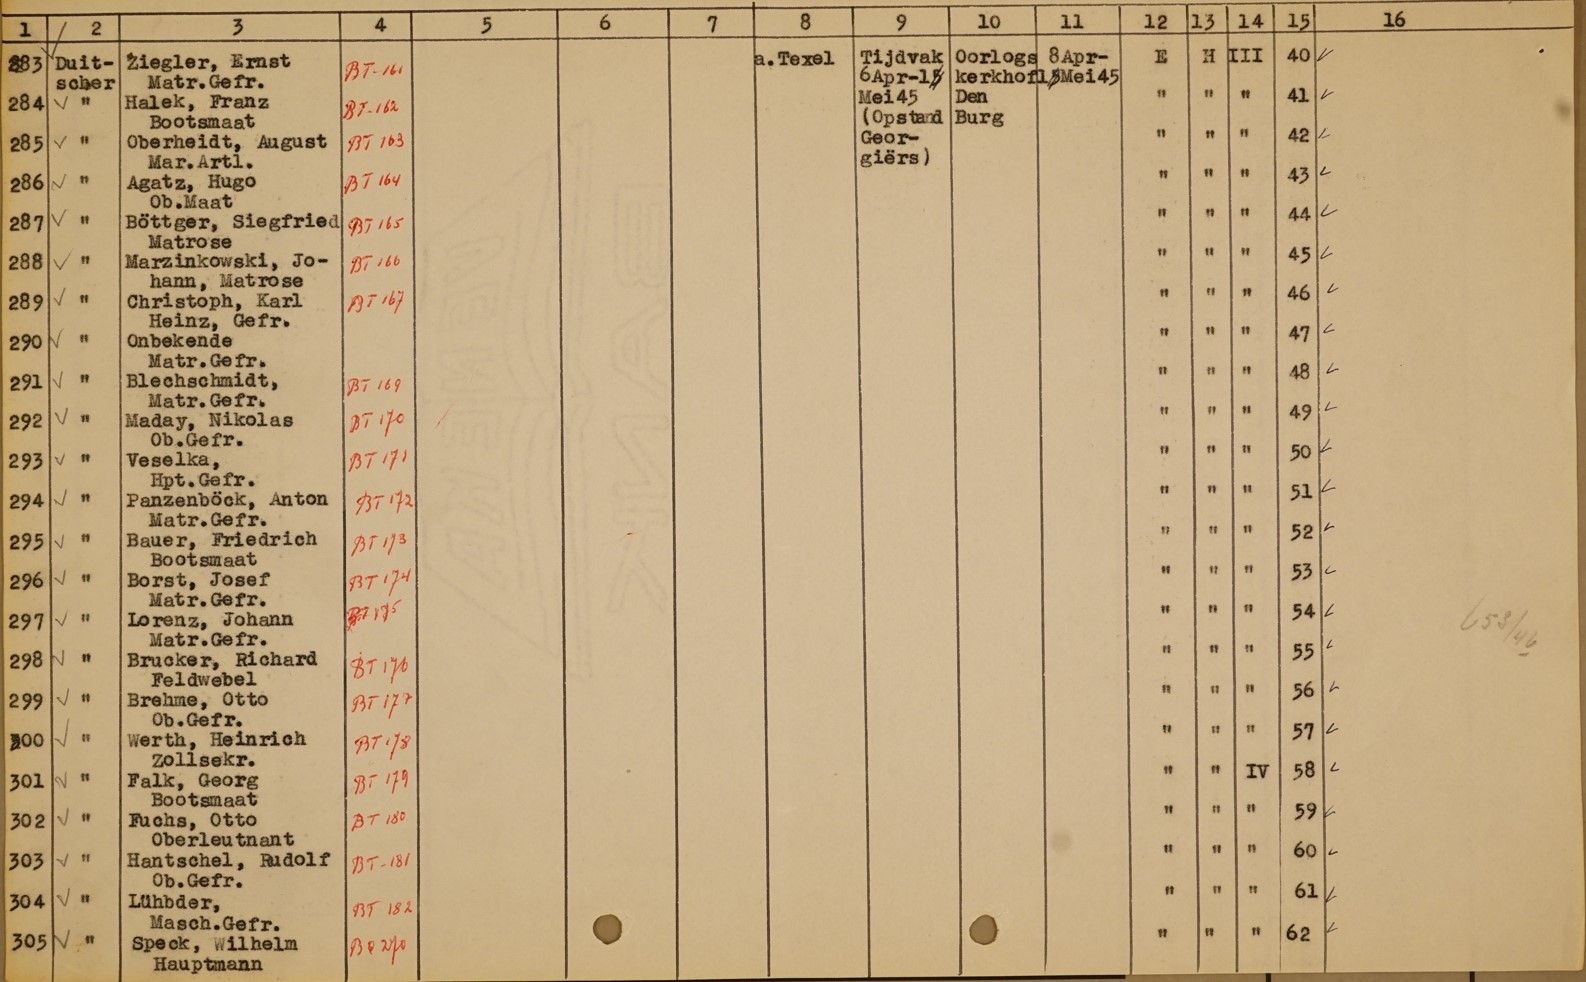 1 2 3 4 5 6 7 8 9 10 11 12 13 14 15 16
283 Duit- Ziegler, Ernst BT-161 a.Texel Tijdvak Oorlogs 8Apr- E H III 40
scher Matr.Gefr. 6Apr-15 kerkhof 15Mei45
284 " Halek, Franz BT-162 Mei45 Den " " " 41
Bootsmaat (Opstand Burg
285 " Oberheidt, August BT 163 Geor- " " " 42
Mar.Artl. giërs)
286 " Agatz, Hugo BT 164 " " " 43
Ob.Maat
287 " Böttger, Siegfried BT 165 " " " 44
Matrose
288 " Marzinkowski, Jo- BT 166 " " " 45
hann, Matrose
289 " Christoph, Karl BT 167 " " " 46
Heinz, Gefr.
290 " Onbekende " " " 47
Matr.Gefr.
291 " Blechschmidt, BT 169 " " " 48
Matr.Gefr.
292 " Maday, Nikolas BT 170 " " " 49
Ob.Gefr.
293 " Veselka, BT 171 " " " 50
Hpt.Gefr.
294 " Panzenböck, Anton BT 172 " " " 51
Matr.Gefr.
295 " Bauer, Friedrich BT 173 " " " 52
Bootsmaat
296 " Borst, Josef BT 174 " " " 53
Matr.Gefr.
297 " Lorenz, Johann BT 175 " " " 54
Matr.Gefr.
298 " Brucker, Richard BT 176 " " " 55
Feldwebel
299 " Brehme, Otto BT 177 " " " 56
Ob.Gefr.
300 " Werth, Heinrich BT 178 " " " 57
Zollsekr.
301 " Falk, Georg BT 179 " " IV 58
Bootsmaat
302 " Fuchs, Otto BT 180 " " " 59
Oberleutnant
303 " Hantschel, Rudolf BT-181 " " " 60
Ob.Gefr.
304 " Lühbder, BT 182 " " " 61
Masch.Gefr.
305 " Speck, Wilhelm " " " 62
Hauptmann